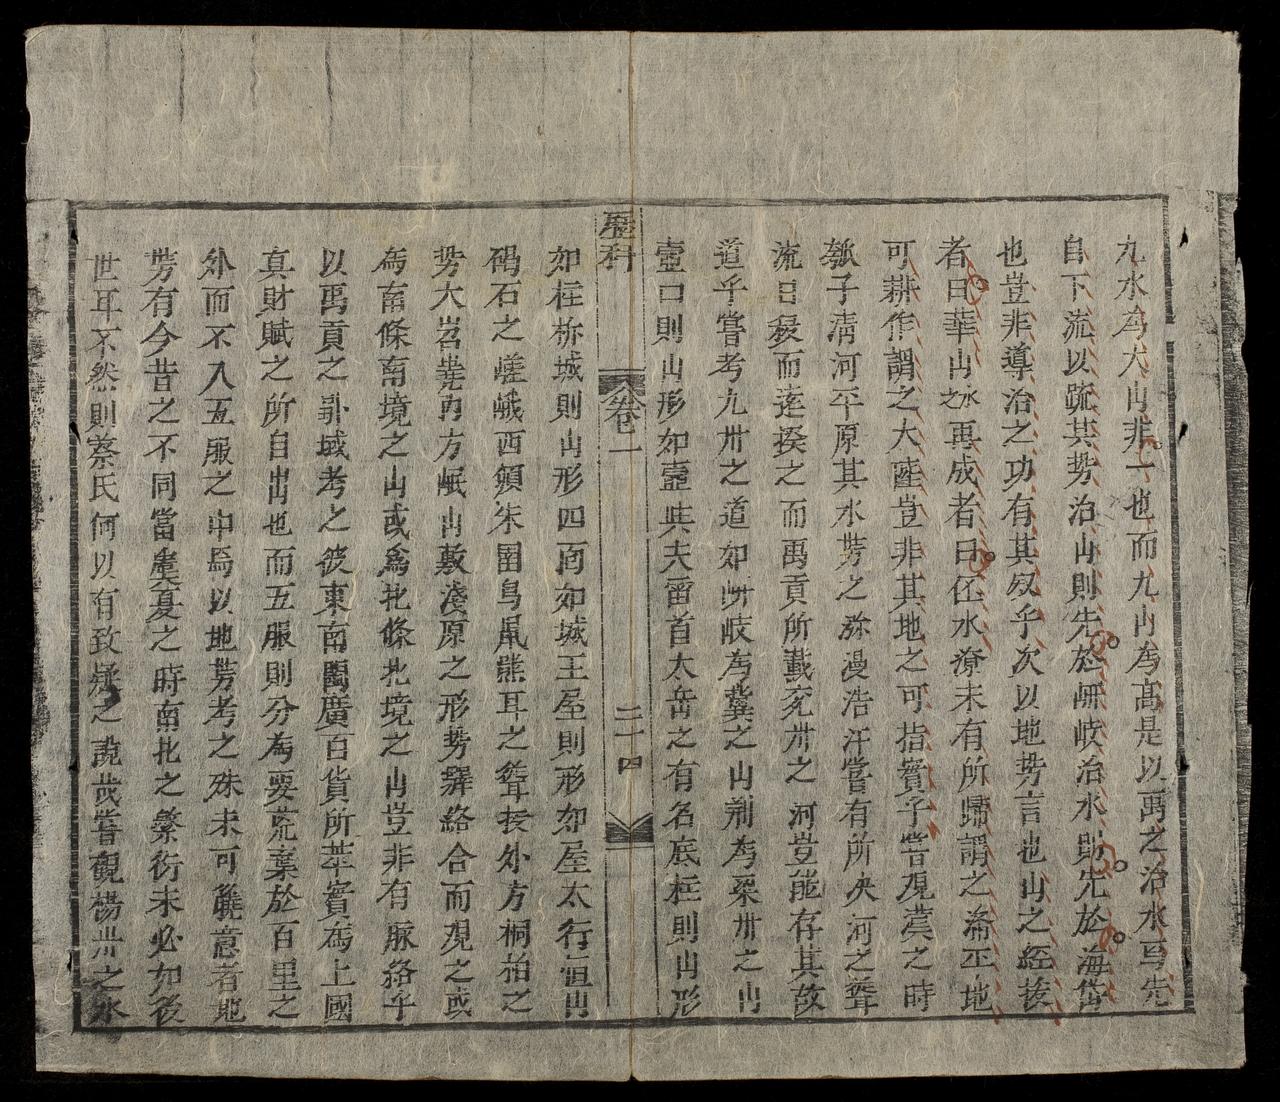 九水為大山非一也而九山為高是以禹之治水焉先
自下流以疏其势治山則先於岍岐治水則先於海岱
也豈非導治之功有其叙乎次以地势言也山之經接
者曰華山之水再成者曰伾水潦未有所歸謂之滀丕地
可耕作謂之大陸豈非其地之可指實乎嘗观漢之時
瓠子淸河平原其水势之㳽漫浩汗嘗有所决河之聳
流曰穪而逵揆之而禹貢所載兖州之河豈能存其故
道乎嘗考九州之道如岍岐為冀之山荆為梁州之山
壺口則山形如壺其夫雷首太岳之有名底柱則山形
歷科 卷一 二十四
如柱析城則山形四面如城王屋則形如屋太行恒山
碣石之嵯峨西傾朱圉鳥鼠熊耳之聳接外方桐柏之
势大岧嶤內方岷山敷淺原之形势繹絡合而观之或
為南條南境之山或為北條北境之山豈非有脉絡乎
以禹貢之疆域考之彼東南閩廣百貨所萃實為上國
真財賦之所自出也而五服則分為要荒棄於百里之
外而不入五服之中焉以地势考之殊未可曉意者地
势有今昔之不同當虞夏之時南北之繁衍未必如後
世耳不然則蔡氏何以有致疑之說哉嘗觀楊州之水